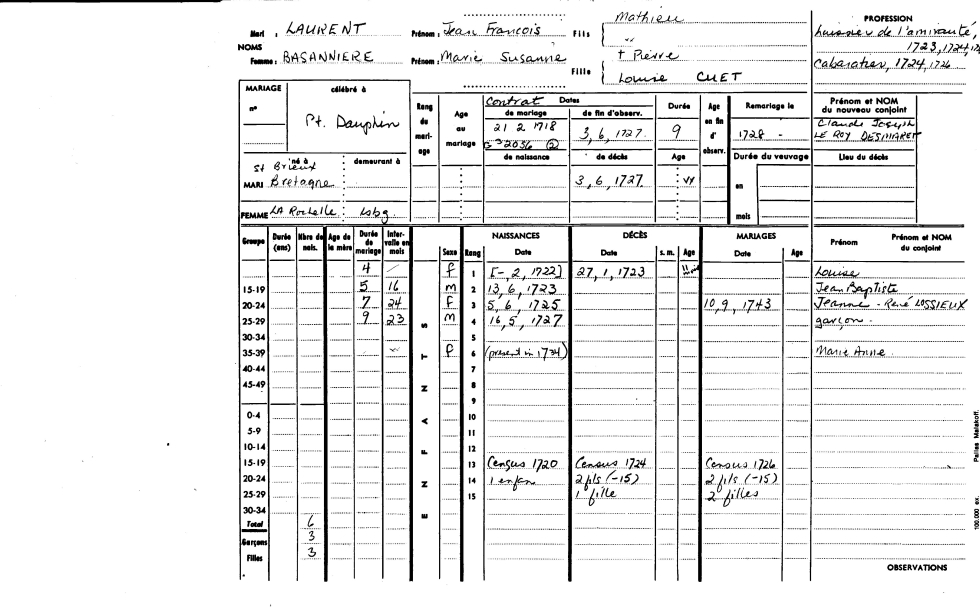 Mari : LAURENT Prénom : Jean Francois Fils { Mathieu
"
NOMS
Femme : BASANNIERE Prénom : Marie Susanne Fille { + Pierre
Louise CUET
PROFESSION
huissier de l'amirauté,
1723, 1724, 172
Cabaratier, 1724, 1726
MARIAGE célébré à
n° Pt. Dauphin
Rang du mariage
Age au mariage
Contrat Dates
de mariage de fin d'observ.
21 2 1718 3, 6, 1727.
G3 2036
de naissance de décès
3, 6, 1727
Durée
9
Age
Age en fin d' observ.
Remariage le
1728 -
Durée du veuvage
en
mois
Prénom et NOM du nouveau conjoint
Claude Joseph
LE ROY DESMARET
Lieu du décès
né à demeurant à
St Brieux
MARI Bretagne
FEMME LA Rochelle Lsbg.
Groupe Durée (ans) Nbre de nais. Age de la mère Durée de mariage Intervalle en mois
ENFANTS
Sexe Rang NAISSANCES Date DÉCÈS Date s. m. Age MARIAGES Date Age Prénom Prénom et NOM du conjoint
4 f 1 [-, 2, 1722] 27, 1, 1723 Louise
15-19 5 16 m 2 13, 6, 1723 Jean Baptiste
20-24 7 24 f 3 5, 6, 1725 10, 9, 1743 Jeanne - René LOSSIEUX
25-29 9 23 m 4 16, 5, 1727 garçon.
30-34 5
35-39 f 6 (present in 1734) Marie Anne
40-44 7
45-49 8
9
0-4 10
5-9 11
10-14 12
15-19 13 Census 1720 Census 1724 Census 1726
20-24 14 1 enfan 2 fils (-15) 2 fils (-15)
25-29 15 1 fille 2 filles
30-34
Total 6
Garçons 3
Filles 3
OBSERVATIONS
100.000 ex. Malakoff.